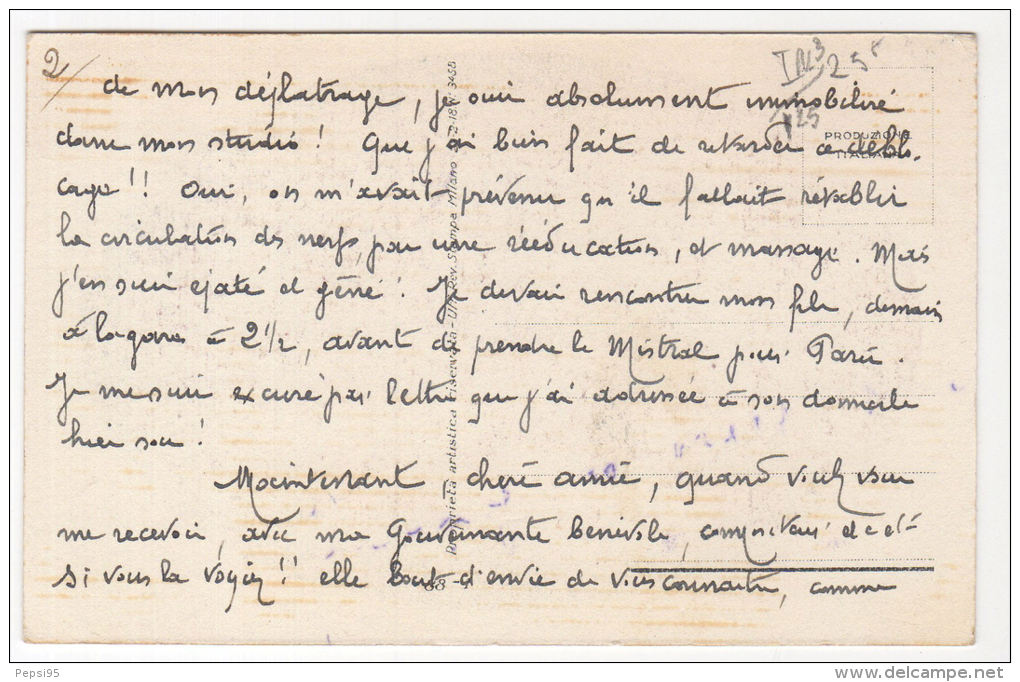 2/
TN3 25
125
PRODUZIONE
ITALIANA
de mon déplatrage, je suis absolument immobilisé
dans mon studio! Que j'ai bien fait de retarder ce deblo-
cage!! Oui, on m'avait prévenu qu'il fallait rétablir
la circulation des nerfs, par une rééducation, et massage. Mais
j'en suis et gêné! Je devais rencontrer mon fils, demain
à la gare à 2 1/2, avant de prendre le Mistral pour Paris.
Je me suis excusé par lettre que j'ai adressée à son domicile
hier soir!
Maintenant chère amie, quand voulez vous
me recevoir, avec ma Gouvernante bénévole,
Si vous la voyiez!! elle bout d'envie de vous connaitre, comme
Proprietà artistica riservata - Uff. Rev. Stampa Milano
88 -
Pepsi95
www.delcampe.net